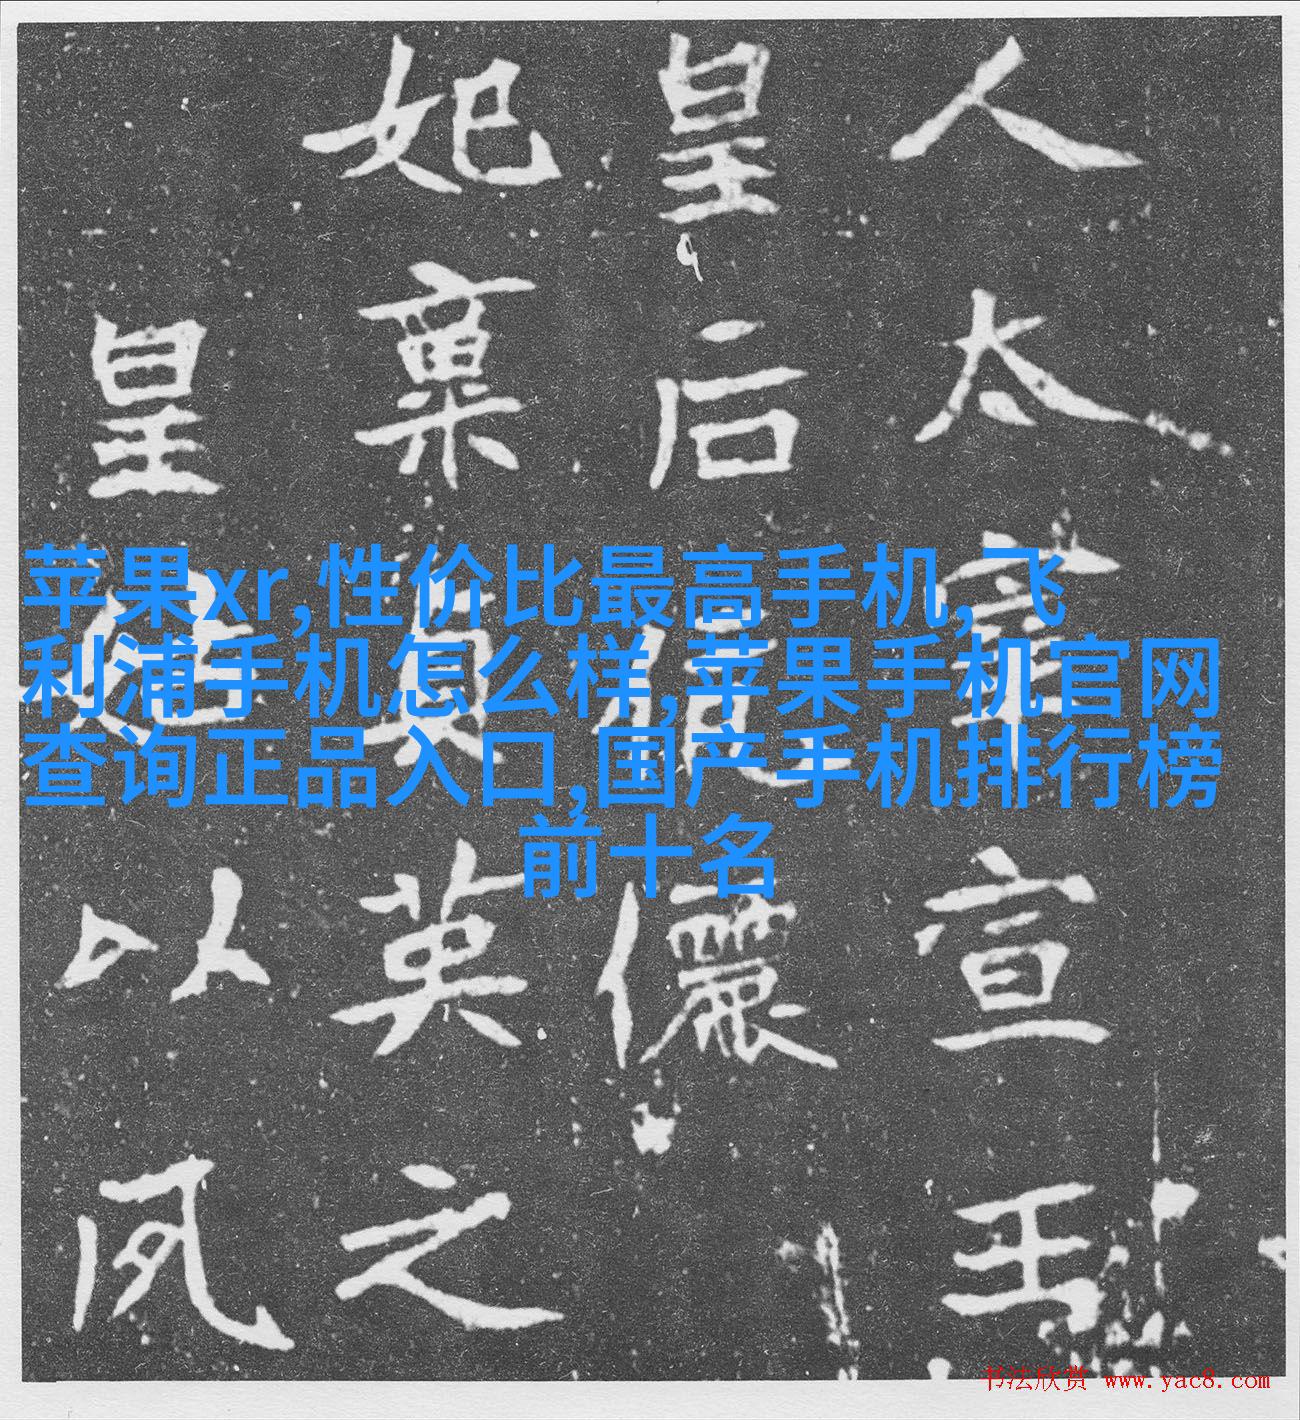 苹果xr,性价比最高手机,飞
利浦手机怎么样,苹果手机官网
查询正品入口,国产手机排行榜
前十名
人太宰宣王
皇后伉儷
妃稟英之
皇以夙
书法欣赏 www.yac8.com